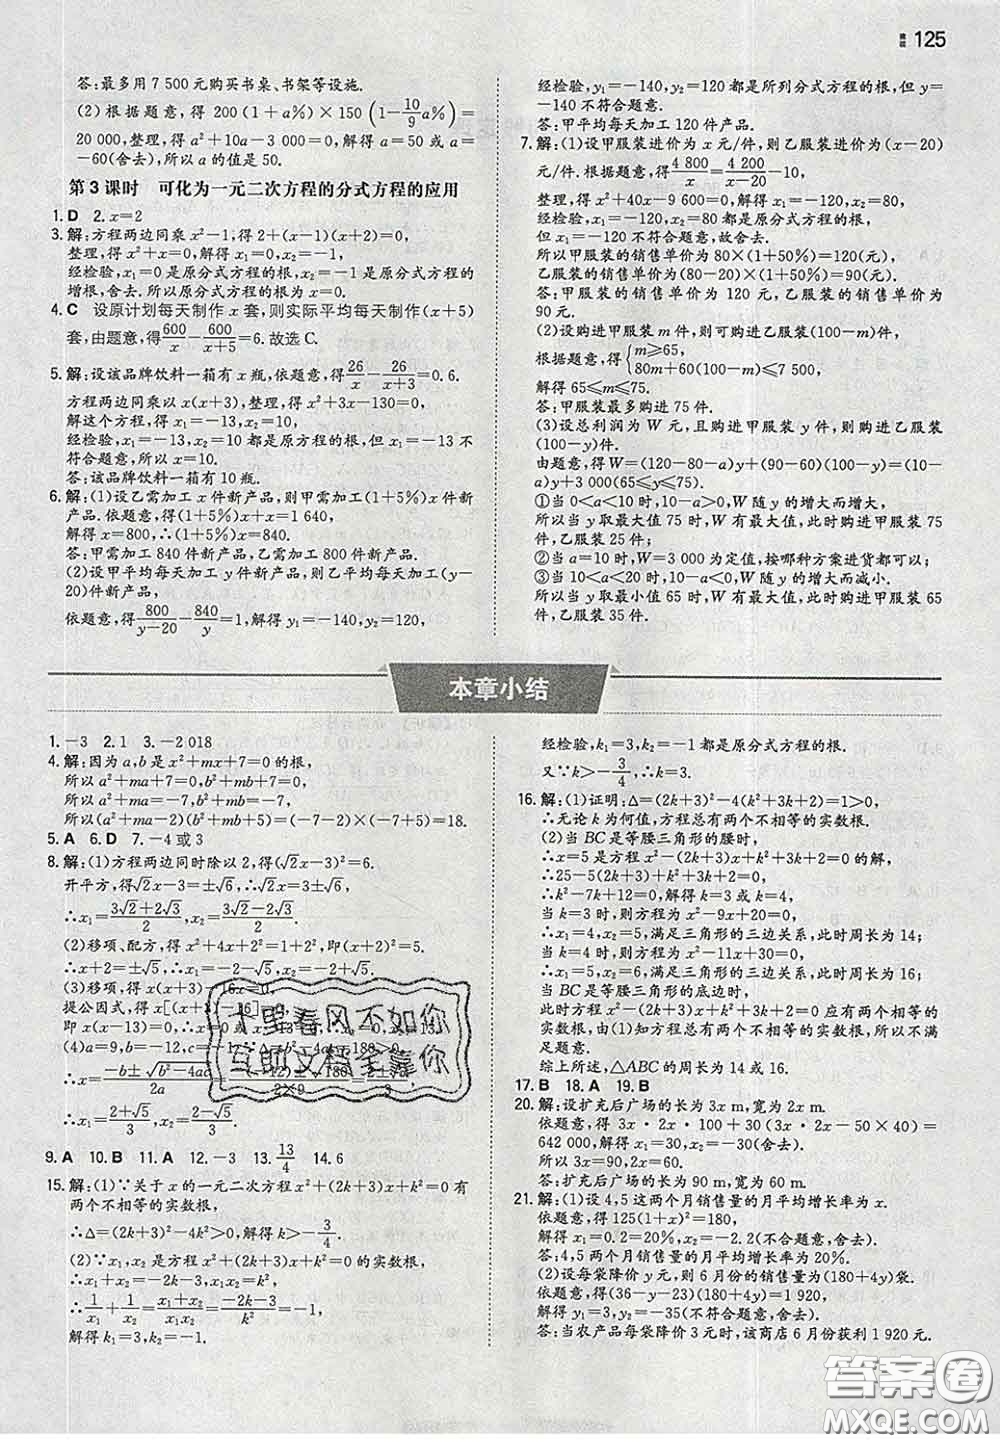 典
125
答:最多用 7 500 元购买书桌、书架等设施.
(2)根据题意,得 200(1+a%)×150(1-10/9 a%)=
20 000,整理,得 a²+10a-3 000=0,解得 a=50 或 a=
-60(舍去),所以 a 的值是 50.
第 3 课时 可化为一元二次方程的分式方程的应用
1. D 2. x=2
3. 解:方程两边同乘 x²-1,得 2+(x-1)(x+2)=0,
整理,得 x²+x=0,解得 x₁=0,x₂=-1.
经检验,x₁=0 是原分式方程的根,x₂=-1 是原分式方程的
增根,舍去.所以原分式方程的根为 x=0.
4. C 设原计划每天制作 x 套,则实际平均每天制作(x+5)
套,由题意,得600/x-600/(x+5)=6.故选 C.
5. 解:设该品牌饮料一箱有 x 瓶,依题意,得26/x-26/(x+3)=0.6.
方程两边同乘以 x(x+3),整理,得 x²+3x-130=0,
解这个方程,得 x₁=-13,x₂=10.
经检验,x₁=-13,x₂=10 都是原方程的根,但 x₁=-13 不
符合题意,所以 x=10.
答:该品牌饮料一箱有 10 瓶.
6. 解:(1)设乙需加工 x 件新产品,则甲需加工(1+5%)x 件新
产品.依题意,得(1+5%)x+x=1 640,
解得 x=800,∴(1+5%)x=840.
答:甲需加工 840 件新产品,乙需加工 800 件新产品.
(2)设甲平均每天加工 y 件新产品,则乙平均每天加工(y-
20)件新产品,
依题意,得800/(y-20)-840/y=1,解得 y₁=-140,y₂=120,
经检验,y₁=-140,y₂=120 都是所列分式方程的根,但 y=
-140 不符合题意.
答:甲平均每天加工 120 件产品.
7. 解:(1)设甲服装进价为 x 元/件,则乙服装进价为(x-20)
元/件.根据题意,得4 800/x=4 200/(x-20)-10,
整理,得 x²+40x-9 600=0,解得 x₁=-120,x₂=80.
经检验,x₁=-120,x₂=80 都是原分式方程的根,
但 x₁=-120 不符合题意,故舍去.
所以甲服装的销售单价为 80×(1+50%)=120(元),
乙服装的销售单价为(80-20)×(1+50%)=90(元).
答:甲服装的销售单价为 120 元,乙服装的销售单价为
90 元.
(2)设购进甲服装 m 件,则可购进乙服装(100-m)件,
根据题意,得{m≥65,
80m+60(100-m)≤7 500,
解得 65≤m≤75.
答:甲服装最多购进 75 件.
(3)设总利润为 W 元,且购进甲服装 y 件,则购进乙服装
(100-y)件.
由题意,得 W=(120-80-a)y+(90-60)(100-y)=(10-
a)y+3 000(65≤y≤75).
①当 0<a<10 时,10-a>0,W 随 y 的增大而增大,
所以当 y 取最大值 75 时,W 有最大值,此时购进甲服装 75
件,乙服装 25 件;
②当 a=10 时,W=3 000 为定值,按哪种方案进货都可以;
③当 10<a<20 时,10-a<0,W 随 y 的增大而减小.
所以当 y 取最小值 65 时,W 有最大值,此时购进甲服装 65
件,乙服装 35 件.
本章小结
1. -3 2. 1 3. -2 018
4. 解:因为 a,b 是 x²+mx+7=0 的根,
所以 a²+ma+7=0,b²+mb+7=0,
所以 a²+ma=-7,b²+mb=-7,
所以(a²+ma-2)(b²+mb+5)=(-7-2)×(-7+5)=18.
5. A 6. D 7. -4 或 3
8. 解:(1)方程两边同时除以 2,得(√2x-3)²=6.
开平方,得√2x-3=±√6,
∴x₁=(3√2+2√3)/2,x₂=(3√2-2√3)/2.
(2)移项、配方,得 x²+4x+2²=1+2²,即(x+2)²=5.
∴x+2=±√5,∴x₁=-2-√5,x₂=-2+√5.
(3)移项,得 x(x+3)-16x=0,
提公因式,得 x[(x+3)-16]=0,
即 x(x-13)=0,∴x₁=0,x₂=13.
(4)a=9,b=-12,c=-1
∴x=(-b±√(b²-4ac))/2a=(-(-12)±√180)/(2×9)=(2±√5)/3,
∴x₁=(2+√5)/3,x₂=(2-√5)/3.
9. A 10. B 11. A 12. -3 13. 13/4 14. 6
15. 解:(1)∵关于 x 的一元二次方程 x²+(2k+3)x+k²=0 有
两个不相等的实数根,
∴Δ=(2k+3)²-4k²>0,解得 k>-3/4.
(2)∵x₁,x₂是方程 x²+(2k+3)x+k²=0 的实数根,
∴x₁+x₂=-2k-3,x₁x₂=k²,
∴1/x₁+1/x₂=(x₁+x₂)/x₁x₂=(-2k-3)/k²=-1,
解得 k₁=3,k₂=-1.
经检验,k₁=3,k₂=-1 都是原分式方程的根.
又∵k>-3/4,∴k=3.
16. 解:(1)证明:Δ=(2k+3)²-4(k²+3k+2)=1>0,
∴无论 k 为何值,方程总有两个不相等的实数根.
(2)当 BC 是等腰三角形的腰时,
∴x=5 是方程 x²-(2k+3)x+k²+3k+2=0 的解,
∴25-5(2k+3)+k²+3k+2=0,
∴k²-7k+12=0,解得 k=3 或 k=4,
当 k=3 时,则方程为 x²-9x+20=0,
∴x₁=4,x₂=5,满足三角形的三边关系,此时周长为 14;
当 k=4 时,则方程为 x²-11x+30=0,
∴x₁=5,x₂=6,满足三角形的三边关系,此时周长为 16;
当 BC 是等腰三角形的底边时,
则方程 x²-(2k+3)x+k²+3k+2=0 应有两个相等的
实数根,由(1)知方程总有两个不相等的实数根,所以不满
足题意.
综上所述,△ABC 的周长为 14 或 16.
17. B 18. A 19. B
20. 解:设扩充后广场的长为 3x m,宽为 2x m.
依题意,得 3x·2x·100+30(3x·2x-50×40)=
642 000,解得 x₁=30,x₂=-30(舍去).
所以 3x=90,2x=60.
答:扩充后广场的长为 90 m,宽为 60 m.
21. 解:(1)设 4,5 这两个月销售量的月平均增长率为 x.
依题意,得 125(1+x)²=180,
解得 x₁=0.2=20%,x₂=-2.2(不合题意,舍去).
答:4,5 两个月销售量的月平均增长率为 20%.
(2)设每袋降价 y 元,则 6 月份的销售量为(180+4y)袋.
依题意,得(36-y-23)(180+4y)=1 920,
解得 y₁=3,y₂=-35(不符合题意,舍去).
答:当农产品每袋降价 3 元时,该商店 6 月份获利 1 920 元.
十里春风不如你
互助文档全靠你
答案圈
MXQE.COM